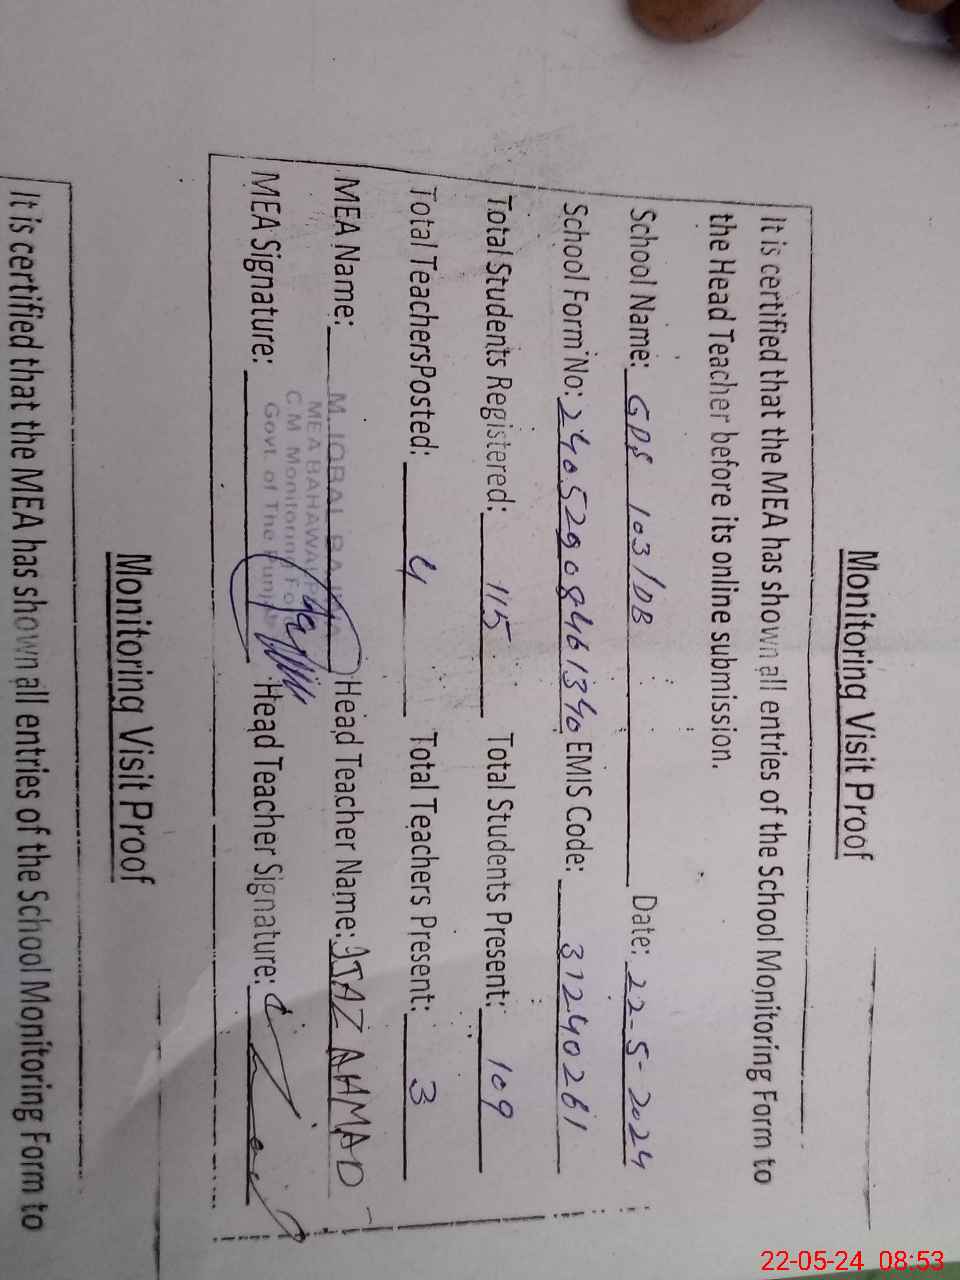 Monitoring Visit Proof
It is certified that the MEA has shown all entries of the School Monitoring Form to
the Head Teacher before its online submission.
School Name: GPS 103/DB Date: 22-5-2024
School Form No: 24052908461340 EMIS Code: 31240261
Total Students Registered: 115 Total Students Present: 109
Total TeachersPosted: 4 Total Teachers Present: 3
MEA Name: M. IQBAL Head Teacher Name: IJAZ AHMAD
MEA BAHAWALPUR
C M Monitoring Fo
Govt. of The Punjab
MEA Signature: Head Teacher Signature:
Monitoring Visit Proof
It is certified that the MEA has shown all entries of the School Monitoring Form to
22-05-24 08:53